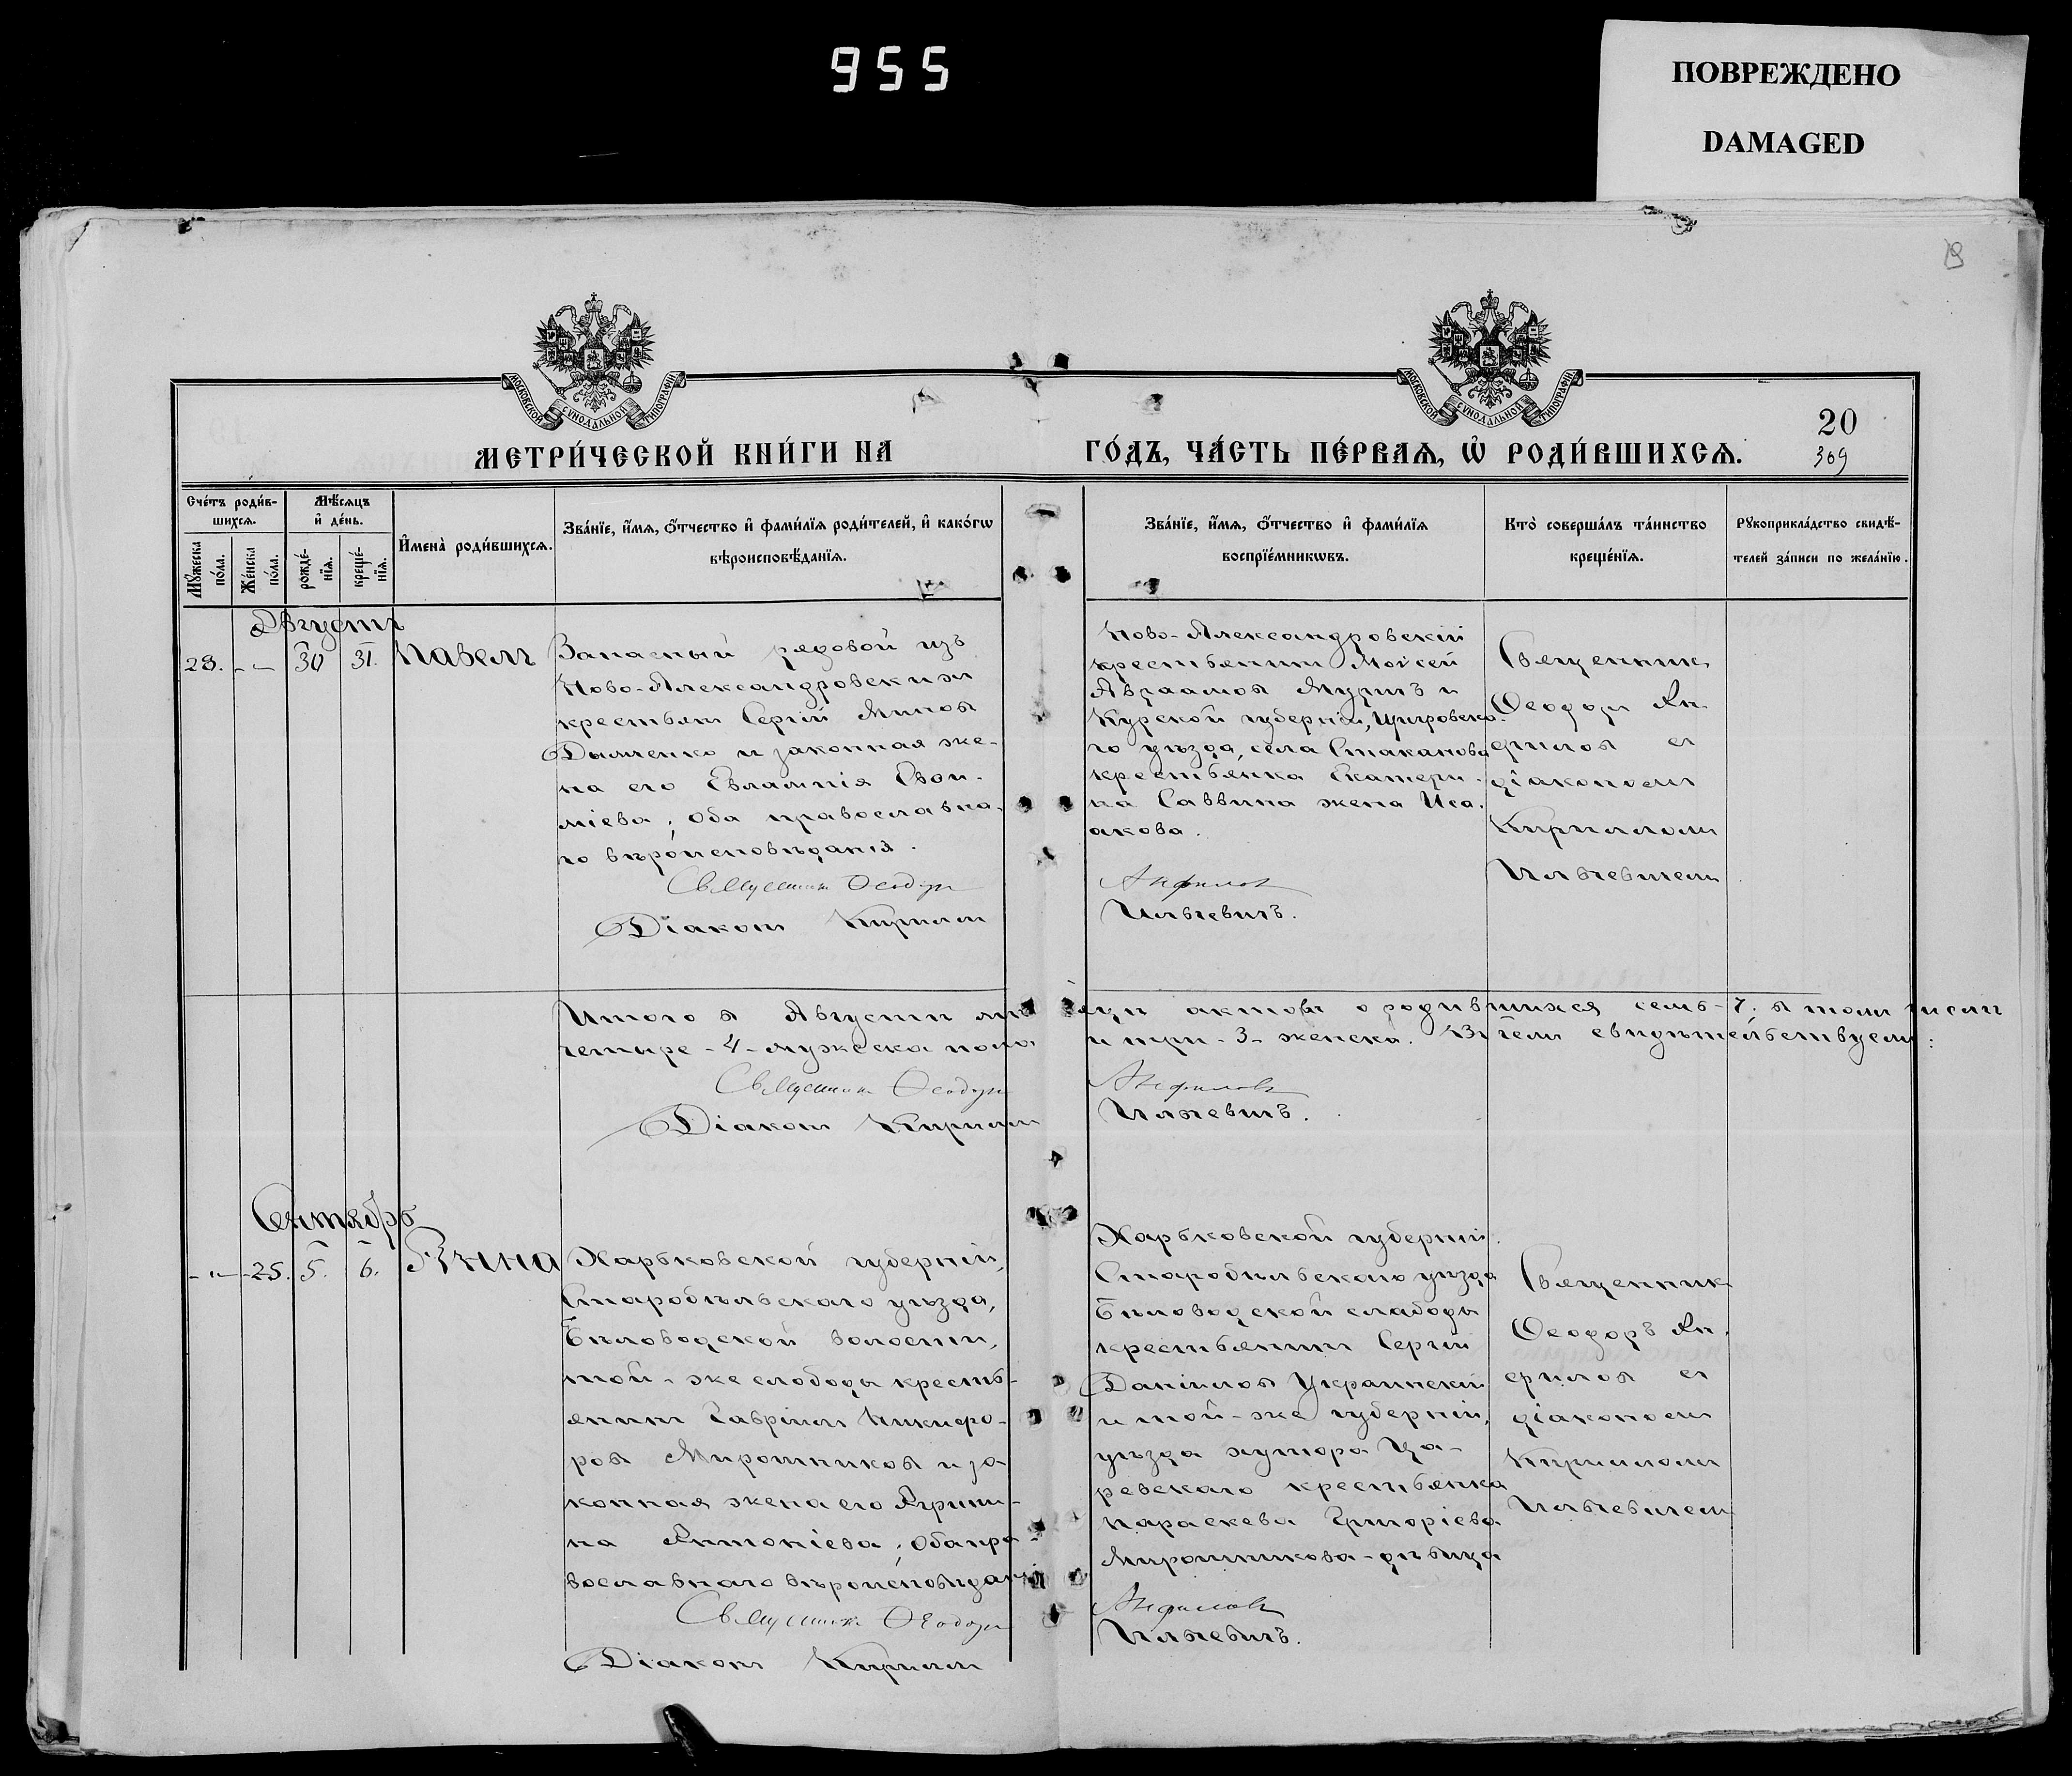 955
ПОВРЕЖДЕНО
DAMAGED
19
МОСКОВСКОЙ СѴНОДАЛЬНОЙ ТИПОГРАФІИ
МОСКОВСКОЙ СѴНОДАЛЬНОЙ ТИПОГРАФІИ
МЕТРИ́ЧЕСКОЙ КНИ́ГИ НА
ГО́ДЪ, ЧА́СТЬ ПЕ́РВАѦ, Ѡ҆ РОДИ́ВШИХСѦ.
20
369
Сче́тъ роди́в-
шихсѧ.
Мѣ́сѧцъ
и҆ де́нь.
Мꙋ́жеска
по́ла.
Же́нска
по́ла.
рожде́-
нїѧ.
креще́-
нїѧ.
И҆мена̀ роди́вшихсѧ.
Зва́нїе, и҆́мѧ, ѻ҆́тчество и҆ фами́лїѧ роди́телей, и҆ како́гѡ
вѣроисповѣ́данїѧ.
Зва́нїе, и҆́мѧ, ѻ҆́тчество и҆ фами́лїѧ
воспрїе́мникѡвъ.
Кто̀ соверша́лъ та́инство
креще́нїѧ.
Рꙋкоприкла́дство свидѣ́-
телей за́писи по жела́нїю.
Августъ
28. - - 30 31. Павелъ
Запасный рядовой изъ
Ново-Александровскихъ
крестьянъ Сергій Миновъ
Дымченко и законная же-
на его Евлампія Евои-
міева; оба православна-
го вѣроисповѣданія.
Священникъ Ѳеодоръ
Діаконъ Кириллъ
Ново-Александровскій
крестьянинъ Моѵсей
Авраамовъ Муринъ и
Курской губерніи, Щигровска-
го уѣзда, села Стаканова
крестьянка Екатери-
на Саввина жена Иса-
акова.
Анфиловъ
Ильчевичъ.
Священникъ
Ѳеодоръ Ан-
филовъ съ
діакономъ
Кирилломъ
Ильчевичемъ
Итого въ Августѣ мѣсяцѣ актовъ о родившихся семь-7. въ томъ числѣ
четыре-4-мужеска пола и три-3-женска. Въ чемъ свидѣтельствуемъ:
Священникъ Ѳеодоръ Анфиловъ
Діаконъ Кириллъ Ильчевичъ.
Сентябрь
- " - 25. 5. 6.
Харьковской губерніи,
Старобѣльскаго уѣзда,
Бѣловодской волости,
той-же слободы кресть-
янинъ Гавріилъ Никифо-
ровъ Мирошниковъ и за-
конная жена его Агрипи-
на Антоніева; оба пра-
вославнаго вѣроисповѣданія
Священникъ Ѳеодоръ
Діаконъ Кириллъ
Харьковской губерніи.
Старобѣльскаго уѣзда
Бѣловодской слабоды
крестьянинъ Сергій
Даніиловъ Украинскій
и той-же губерніи,
уѣзда хутора Ца-
ревскаго крестьянка
Параскева Григоріева
Мирошникова-дѣвица
Анфиловъ
Ильчевичъ.
Священникъ
Ѳеодоръ Ан-
филовъ съ
діакономъ
Кирилломъ
Ильчевичемъ